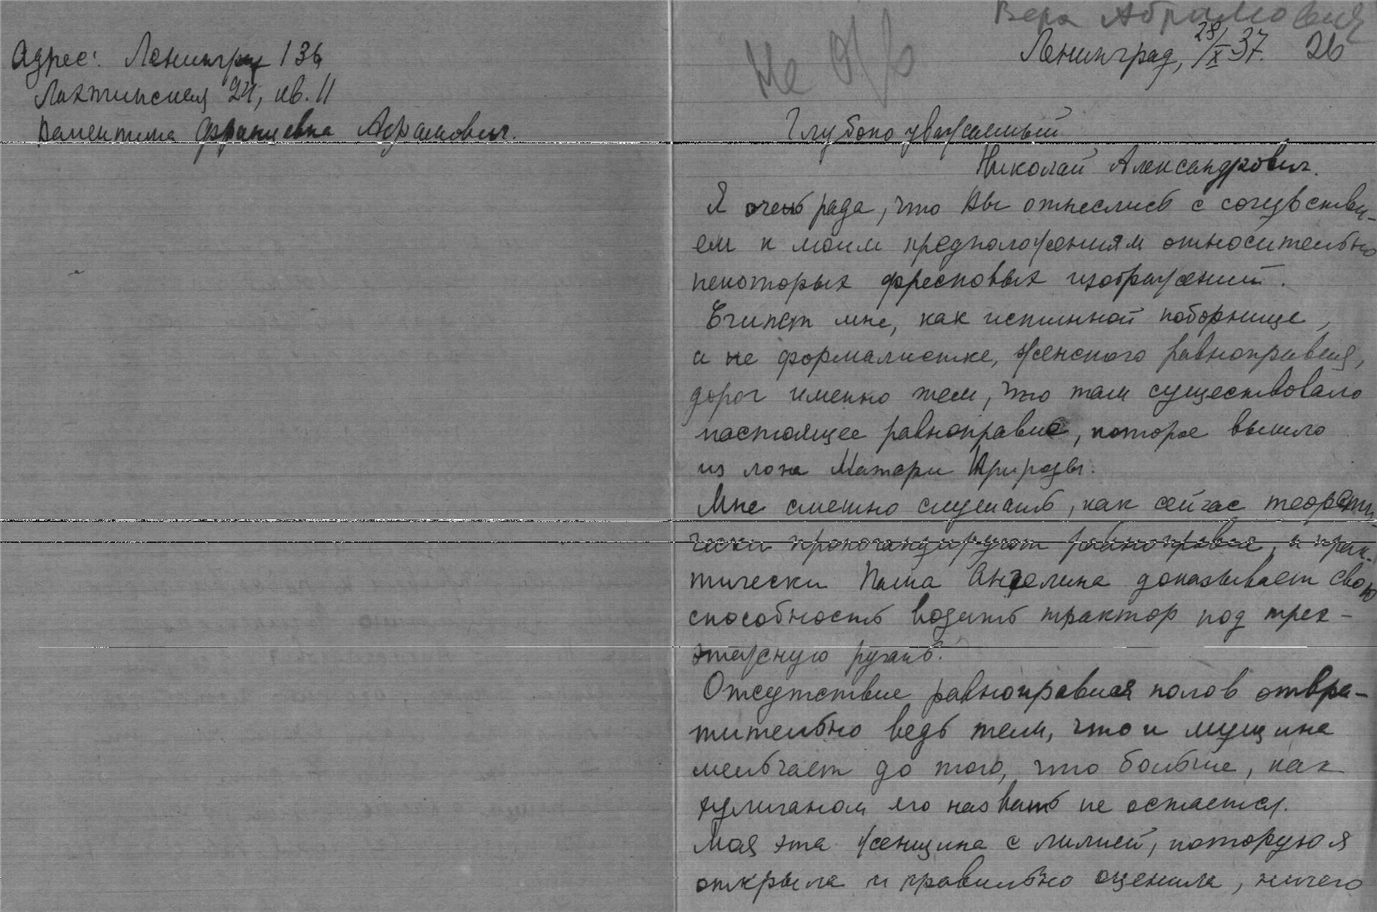 Адрес: Ленинград 136
Лахтинская 24, кв. 11
Валентина Францевна Абрамович.
Вера Абрамовия
Не
Ленинград, 28/X 37. 26
Глубоко уважаемый
Николай Александрович.
Я очень рада, что Вы отнеслись с сочувстви-
ем к моим предположениям относительно
некоторых фресковых изображений.
Египет мне, как истинной поборнице,
а не формалистке, женского равноправия,
дорог именно тем, что там существовало
настоящее равноправие, которое вышло
из лона Матери Природы.
Мне смешно слушать, как сейчас теорети
чески пропогандируют равноправие, и прак-
тически Паша Ангелина доказывает свою
способность водить трактор под трех-
этажную ругань.
Отсутствие равноправия полов отвра-
тительно ведь тем, что и мущина
мельчает до того, что больше, как
хулиганом его назвать не остается.
Моя эта женщина с лилией, которую я
открыла и правильно оценила, ничего